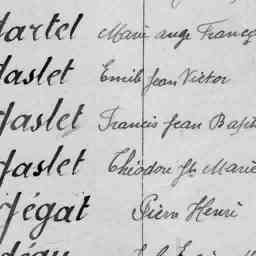 Jartel Marie ange Franço
Jaslet Emile Jean Victor
Jaslet Francis Jean Bapt
Jaslet Théodore Jh Marie
Jégat Pierre Henri